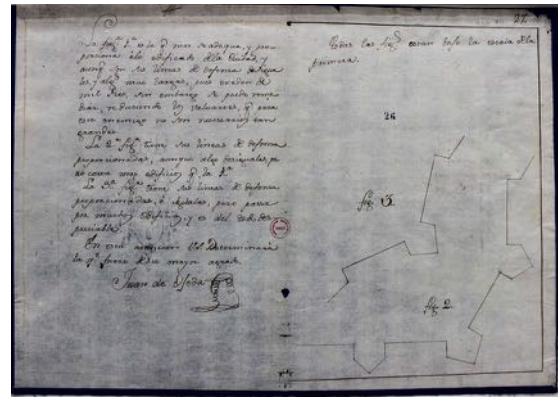 La fig.ª 1.ª es la q.e mas se adequa, y pro-
porciona à lo edificado de la Ciudad, y
aunq.e son sus lineas de defensa desigua-
les, y alg.s muy largas, pues exceden de
mil Pies, sin embargo se puede reme-
diar, reduciendo los valuartes, q.e para
este enemigo no son necesarios tan
grandes.
La 2.ª fig.ª tiene sus lineas de defensa
proporcionadas, aunque algo desiguales, pe
no coxta mas edificios q.e la 1.ª
La 3.ª fig.ª tiene sus lineas de defensa
proporcionadas, è iguales, pero passa
por muchos edificios, y es del todo des-
preciable.
En esta atencion VS. Determinará
la q.e fuere de su mayor agrado.
Juan de Useda
27
Todas las fig.s estan baxo la escala de la
primera.
26
fig. 3.
fig. 2.